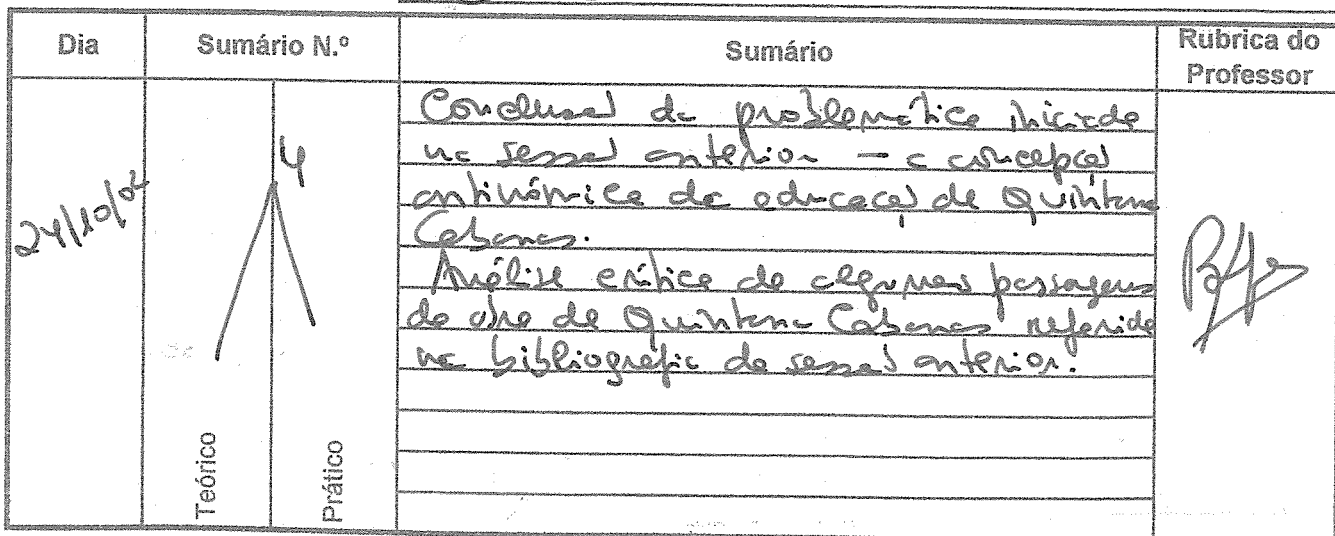 Dia
Sumário N.º
Sumário
Rubrica do
Professor
24/10/02
4
Conclusão da problemática iniciada
na sessão anterior – a concepção
antinómica da educação de Quintana
Cabanas.
Análise crítica de algumas passagens
da obra de Quintana Cabanas referida
na bibliografia da sessão anterior.
Teórico
Prático